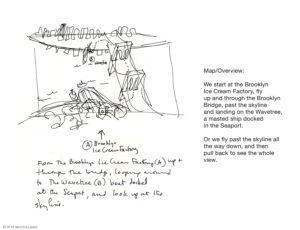 Map/Overview:
We start at the Brooklyn
Ice Cream Factory, fly
up and through the Brooklyn
Bridge, past the skyline
and landing on the Wavetree,
a masted ship docked
in the Seaport.
Or we fly past the skyline
all the way down, and then
pull back to see the whole
view.
B
Wavetree
A Brooklyn
Ice Cream Factory
From the Brooklyn Ice Cream Factory (A) up +
through the bridge, looping around
to the Wavetree (B) boat docked
at the Seaport, and look up at the
skyline.